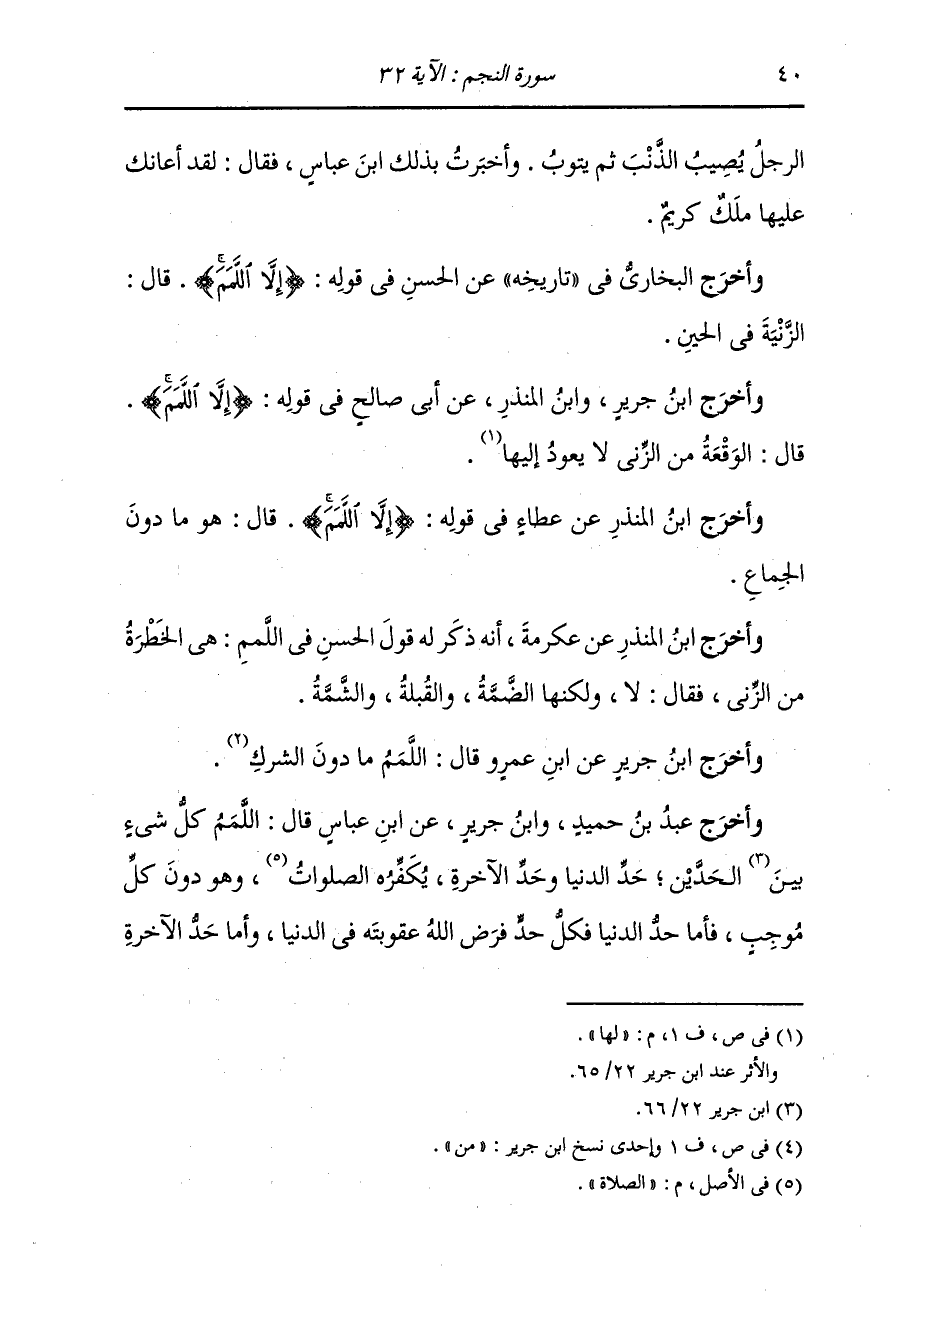 ٤٠ سورة النجم : الآية ٣٢
الرجلُ يُصِيبُ الذَّنْبَ ثم يتوبُ . وأخبَرتُ بذلك ابنَ عباسٍ ، فقال : لقد أعانك
عليها ملَكٌ كريمٌ .
وأخرَج البخارىُّ فى «تاريخِه» عن الحسنِ فى قولِه : ﴿إِلَّا ٱللَّمَمَۚ﴾ . قال :
الزَّنْيَةَ فى الحينِ .
وأخرَج ابنُ جريرٍ ، وابنُ المنذرِ ، عن أبى صالحٍ فى قولِه : ﴿إِلَّا ٱللَّمَمَۚ﴾ .
قال : الوَقْعَةُ من الزِّنى لا يعودُ إليها(١) .
وأخرَج ابنُ المنذرِ عن عطاءٍ فى قولِه : ﴿إِلَّا ٱللَّمَمَۚ﴾ . قال : هو ما دونَ
الجِماعِ .
وأخرَج ابنُ المنذرِ عن عكرمةَ ، أنه ذكَر له قولَ الحسنِ فى اللَّممِ : هى الخَطْرَةُ
من الزِّنى ، فقال : لا ، ولكنها الضَّمَّةُ ، والقُبلةُ ، والشَّمَّةُ .
وأخرَج ابنُ جريرٍ عن ابنِ عمرٍو قال : اللَّمَمُ ما دونَ الشركِ(٢) .
وأخرَج عبدُ بنُ حميدٍ ، وابنُ جريرٍ ، عن ابنِ عباسٍ قال : اللَّمَمُ كلُّ شىءٍ
بينَ(٣) الحَدَّيْن ؛ حَدِّ الدنيا وحَدِّ الآخرةِ ، يُكَفِّرُه الصلواتُ(٥) ، وهو دونَ كلِّ
مُوجِبٍ ، فأما حدُّ الدنيا فكلُّ حدٍّ فرَض اللهُ عقوبتَه فى الدنيا ، وأما حَدُّ الآخرةِ
(١) فى ص ، ف ١، م : «لها» .
والأثر عند ابن جرير ٢٢/ ٦٥.
(٣) ابن جرير ٢٢/ ٦٦.
(٤) فى ص ، ف ١ وإحدى نسخ ابن جرير : «من» .
(٥) فى الأصل ، م : «الصلاة» .